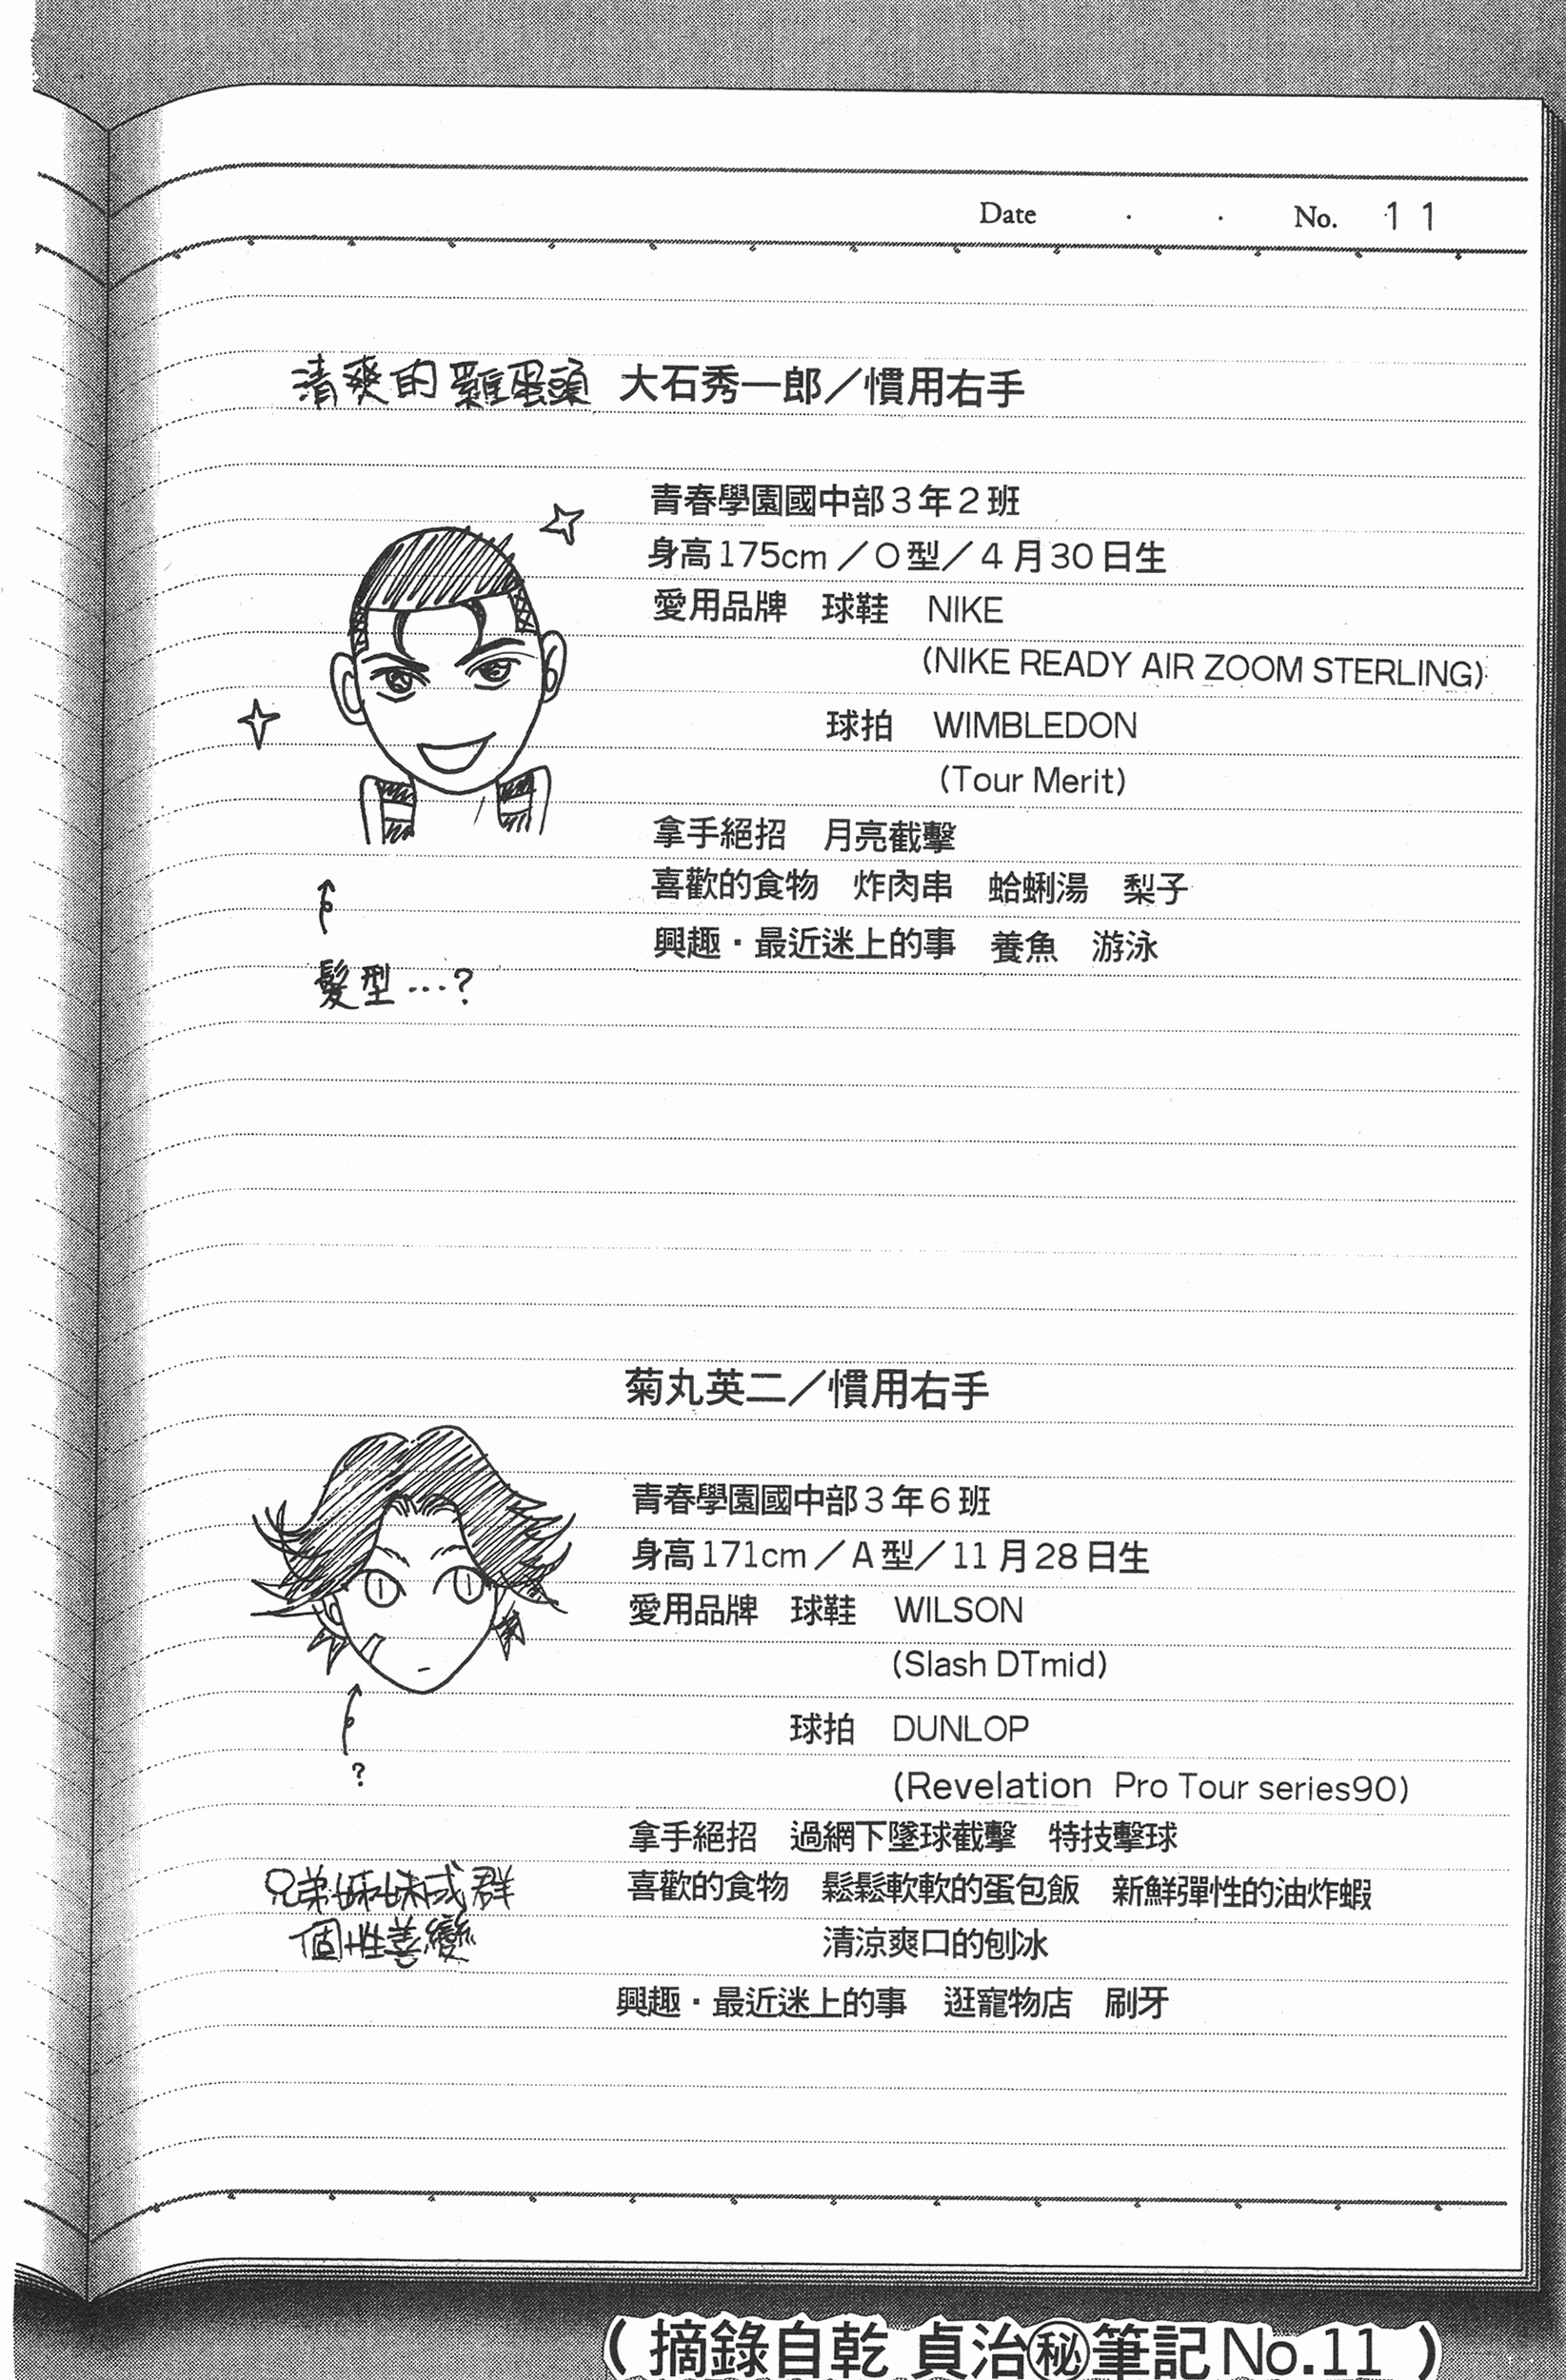 Date . . No. 11
清爽的雞蛋頭 大石秀一郎／慣用右手
青春學園國中部3年2班
身高175cm／O型／4月30日生
愛用品牌 球鞋 NIKE
(NIKE READY AIR ZOOM STERLING)
球拍 WIMBLEDON
(Tour Merit)
拿手絕招 月亮截擊
喜歡的食物 炸肉串 蛤蜊湯 梨子
興趣・最近迷上的事 養魚 游泳
髮型…?
菊丸英二／慣用右手
青春學園國中部3年6班
身高171cm／A型／11月28日生
愛用品牌 球鞋 WILSON
(Slash DTmid)
球拍 DUNLOP
(Revelation Pro Tour series90)
?
拿手絕招 過網下墜球截擊 特技擊球
喜歡的食物 鬆鬆軟軟的蛋包飯 新鮮彈性的油炸蝦
清涼爽口的刨冰
興趣・最近迷上的事 逛寵物店 刷牙
兄弟姊妹成群
個性善變
(摘錄自乾 貞治㊙筆記No.11)